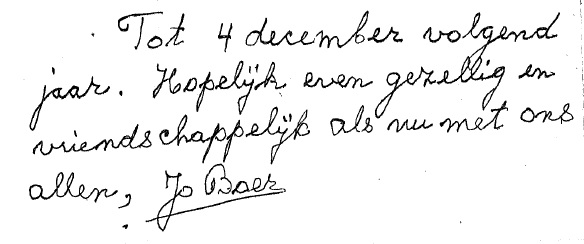 Tot 4 december volgend
jaar. Hopelijk even gezellig en
vriendschappelijk als nu met ons
allen, Jo Baer